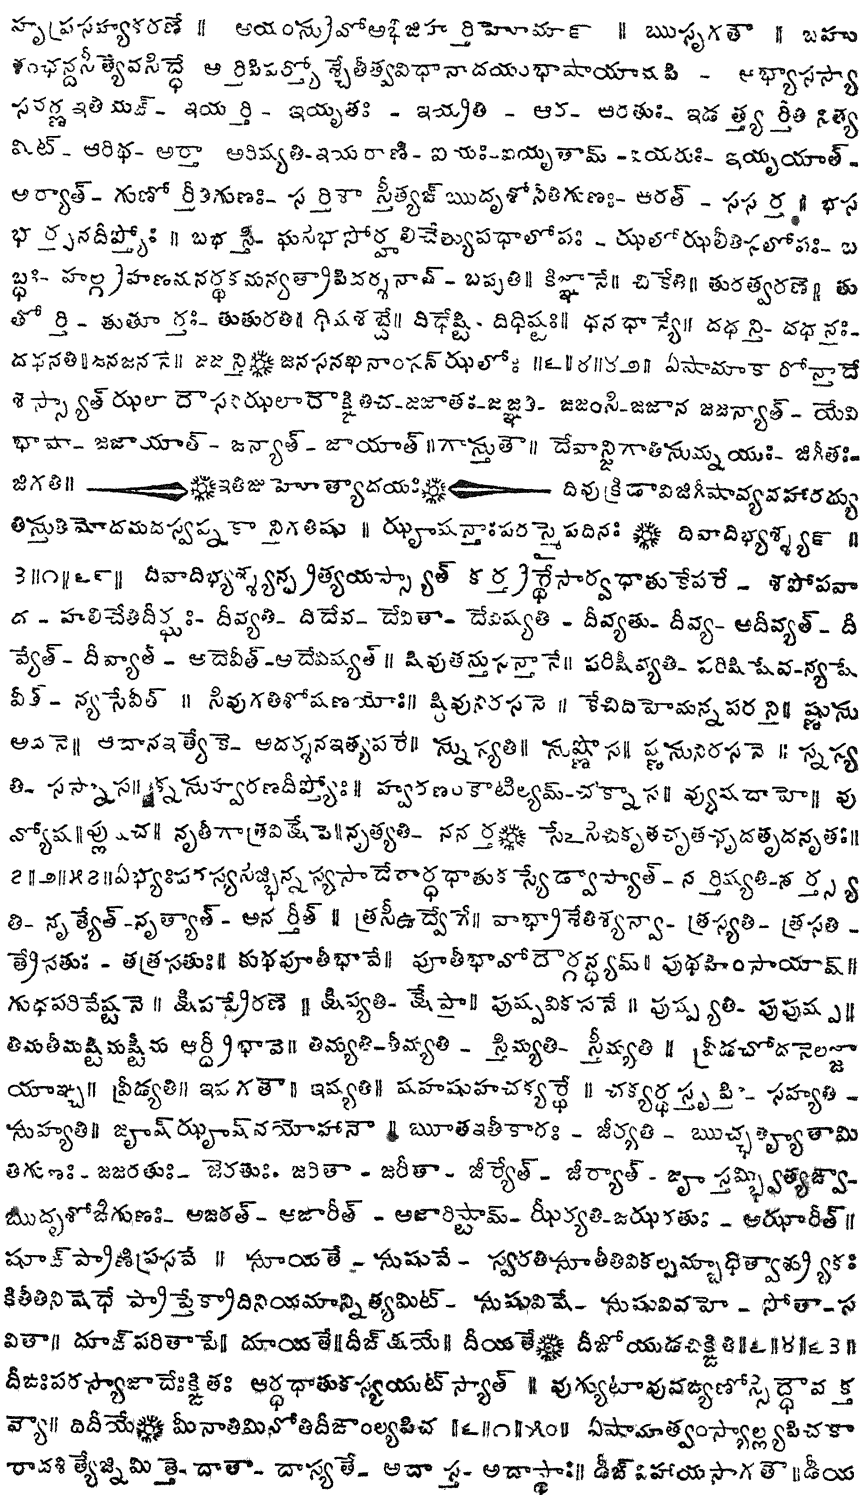 హృప్రసహ్యకరణే ॥ అయంస్రువోఅభిజిహర్తిహోమా౯ ॥ ఋసృగతౌ ॥ బహు
ళంఛన్దసీత్యేవసిద్ధే అర్తిపిపర్త్యోశ్చేతీత్వవిధానాదయంభాషాయామపి - అభ్యాసస్యా
సవర్ణఇతియఙ్ - ఇయర్తి - ఇయృతః - ఇయ్రతి - ఆర - ఆరతుః - ఇడత్త్యర్తీతినిత్య
మిట్ - ఆరిథ - అర్తా అరిష్యతి - ఇయరాణి - ఐయః - ఐయృతామ్ - ఐయరుః - ఇయృయాత్ -
అర్యాత్ - గుణోర్తీతిగుణః - సర్తిశాస్తీత్యఙ్ఋదృశోఙీతిగుణః - ఆరత్ - ససర్త ॥ భస
భర్త్సనదీప్త్యోః ॥ బభస్తి - ఘసిభసోర్హలిచేత్యుపధాలోపః - ఝలోఝలీతిసలోపః - బ
బ్ధః - హల్గ్రహణమనర్థకమన్యత్రాపిదర్శనాత్ - బప్సతి॥ కిజ్ఞానే॥ చికేతి॥ తురత్వరణే॥ తు
తోర్తి - తుతూర్తః - తుతురతి॥ ధిషశబ్దే॥ దిధేష్టి - దిధిష్టః॥ ధనధాన్యే॥ దధన్తి - దధన్తః -
దధనతి॥జనజననే॥ జజన్తి జనసనఖనాంసన్‌ఝలోః ॥౬॥౪॥౪౨॥ ఏషామాకారోన్తాదే
శస్స్యాత్ఝలాదౌసనిఝలాదౌక్ఙితిచ - జజాతః - జజ్ఞతి - జజంసి - జజాన జజన్యాత్ - యేవి
భాషా - జజాయాత్ - జన్యాత్ - జాయాత్॥గాస్తుతౌ॥ దేవాన్జిగాతిసుమ్నయుః - జిగీతః -
జిగతి॥ ఇతిజుహోత్యాదయః దివుక్రీడావిజిగీషావ్యవహారద్యు
తిస్తుతిమోదమదస్వప్నకాన్తిగతిషు ॥ ఝౄషన్తాఃపరస్మైపదినః దివాదిభ్యశ్శ్య౯ ॥
౩॥౧॥౬౯॥ దివాదిభ్యశ్శ్యన్ప్రత్యయస్స్యాత్ కర్త్రర్థేసార్వధాతుకేపరే - శపోపవా
ద - హలిచేతిదీర్ఘః - దీవ్యతి - దిదేవ - దేవితా - దేవిష్యతి - దీవ్యతు - దీవ్య - అదీవ్యత్ - దీ
వ్యేత్ - దీవ్యాత్ - అదేవీత్ - అదేవిష్యత్॥ షివుతన్తుసన్తానే॥ పరిషీవ్యతి - పరిషిషేవ - న్యషే
వీత్ - న్యసేవీత్ ॥ సివుగతిశోషణయోః॥ ష్ఠివునిరసనే ॥ కేచిదిహేమన్నపరన్తి॥ ష్ణుసు
అదనే॥ ఆదానఇత్యేకే - అదర్శనఇత్యపరే॥ స్నుస్యతి॥ సుష్ణోస॥ ష్ణసునిరసనే ॥ స్నస్య
తి - సస్నాస॥క్నసుహ్వరణదీప్త్యోః॥ హ్వరణంకౌటిల్యమ్ - చక్నాస॥ వ్యుషదాహే॥ వు
వ్యోష॥ప్లుషచ॥ నృతీగాత్రవిక్షేపే॥నృత్యతి - ననర్త సేఽసిచికృతచృతఛృదతృదనృతః॥
౭॥౨॥౫౭॥ఏభ్యఃపరస్యసజ్భిన్నస్యసాదేరార్ధధాతుకస్యేడ్వాస్యాత్ - నర్తిష్యతి - నర్త్స్య
తి - నృత్యేత్ - నృత్యాత్ - అనర్తీత్ ॥ త్రసీఉద్వేగే॥ వాభ్రాశేతిశ్యన్వా - త్రస్యతి - త్రసతి -
త్రేసతుః - తత్రసతుః॥ కుథపూతీభావే॥ పూతీభావోదౌర్గన్ధ్యమ్॥ పుథహింసాయామ్॥
గుధపరివేష్టనే ॥ క్షిపప్రేరణే ॥ క్షిప్యతి - క్షేప్తా॥ పుష్పవికసనే ॥ పుష్ప్యతి - పుపుష్ప॥
తిమతీమష్టిమష్టీమ ఆర్ద్రీభావే॥ తిమ్యతి - తీమ్యతి - స్తిమ్యతి - స్తీమ్యతి ॥ వ్రీడచోదనేలజ్జా
యాఞ్చ॥ వ్రీడ్యతి॥ ఇషగతౌ॥ ఇష్యతి॥ షహషుహచక్యర్థే ॥ చక్యర్థస్తృప్తిః - సహ్యతి -
సుహ్యతి॥ జౄష్ఝౄష్‌వయోహానౌ ॥ ౠతఇతీకారః - జీర్యతి - ఋచ్ఛత్యౄతామి
తిగుణః - జజరతుః - జేరతుః - జరితా - జరీతా - జీర్యేత్ - జీర్యాత్ - జౄస్తమ్భ్విత్యఙ్వా -
ఋదృశోఙిగుణః - అజరత్ - అజారీత్ - అజారిష్టామ్ - ఝీర్యతి - జఝరతుః - అఝారీత్॥
షూఙ్‌ప్రాణిప్రసవే ॥ సూయతే - సుషువే - స్వరతిసూతీతివికల్పమ్బాధిత్వాశ్ర్యుకః
కితీతినిషేధే ప్రాప్తేక్రాదినియమాన్నిత్యమిట్ - సుషువిషే - సుషువివహే - సోతా - స
వితా॥ దూఙ్‌పరితాపే॥ దూయతే॥దీఙ్‌క్షయే॥ దీయతే దీఙోయుడచిక్ఙితి॥౬॥౪॥౬౩॥
దీఙఃపరస్యాజాదేఃక్ఙితః ఆర్ధధాతుకస్యయుట్‌స్యాత్ ॥ వుగ్యుటావువఙ్యణోస్సిద్ధౌవక్త
వ్యౌ॥ దిదీయే మీనాతిమినోతిదీఙాంల్యపిచ ॥౬॥౧॥౫౦॥ ఏషామాత్వంస్యాల్ల్యపిచకా
రాదశిత్యేజ్నిమిత్తే - దాతా - దాస్యతే - అదాస్త - అదాస్థాః॥ డీఙ్‌విహాయసాగతౌ॥డీయ